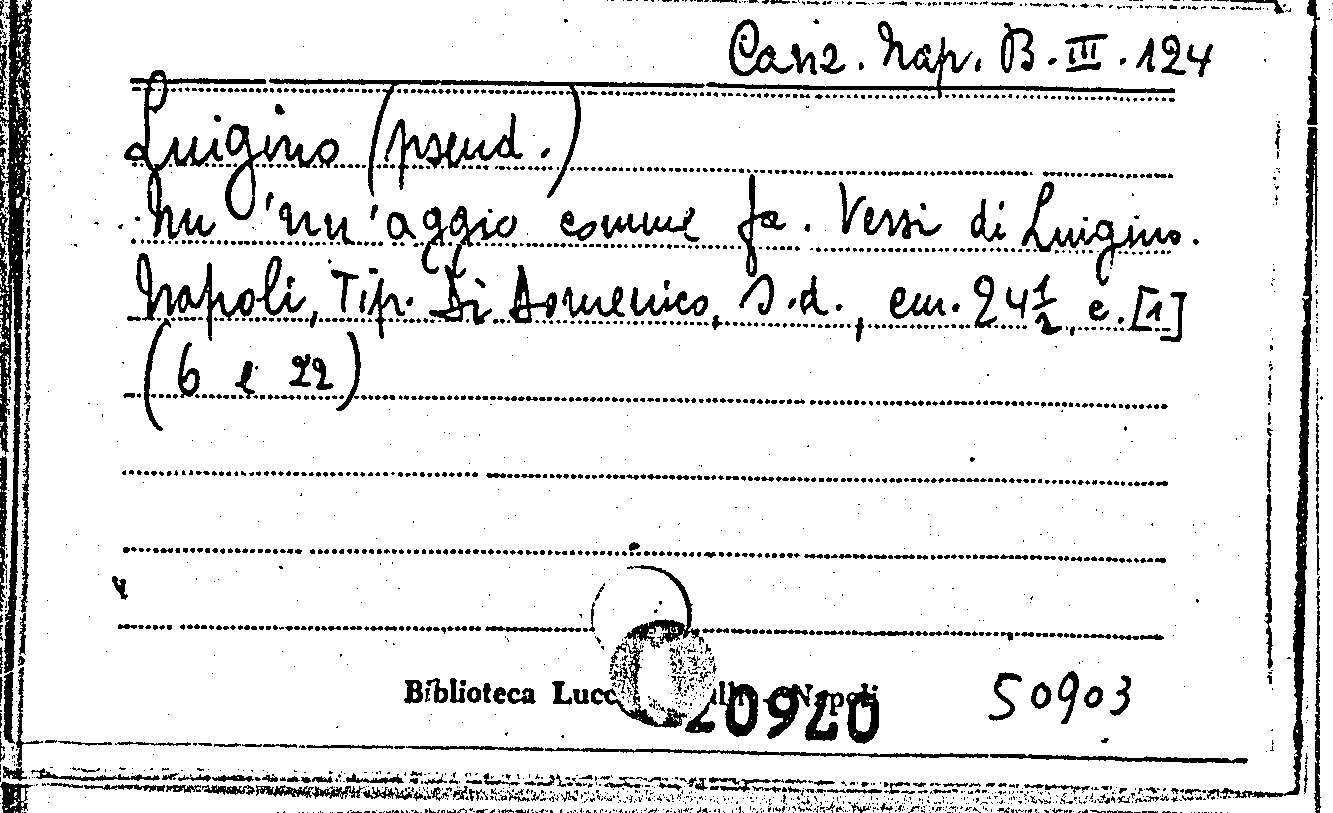 Canz. Nap. B. III. 124
Luigino (pseud.)
Nu 'nn' aggio comme fa. Versi di Luigino.
Napoli, Tip. Di Domenico, s.d., cm. 24 1/2, c. [1]
(6 e 22)
Biblioteca Lucc Napoli
50903